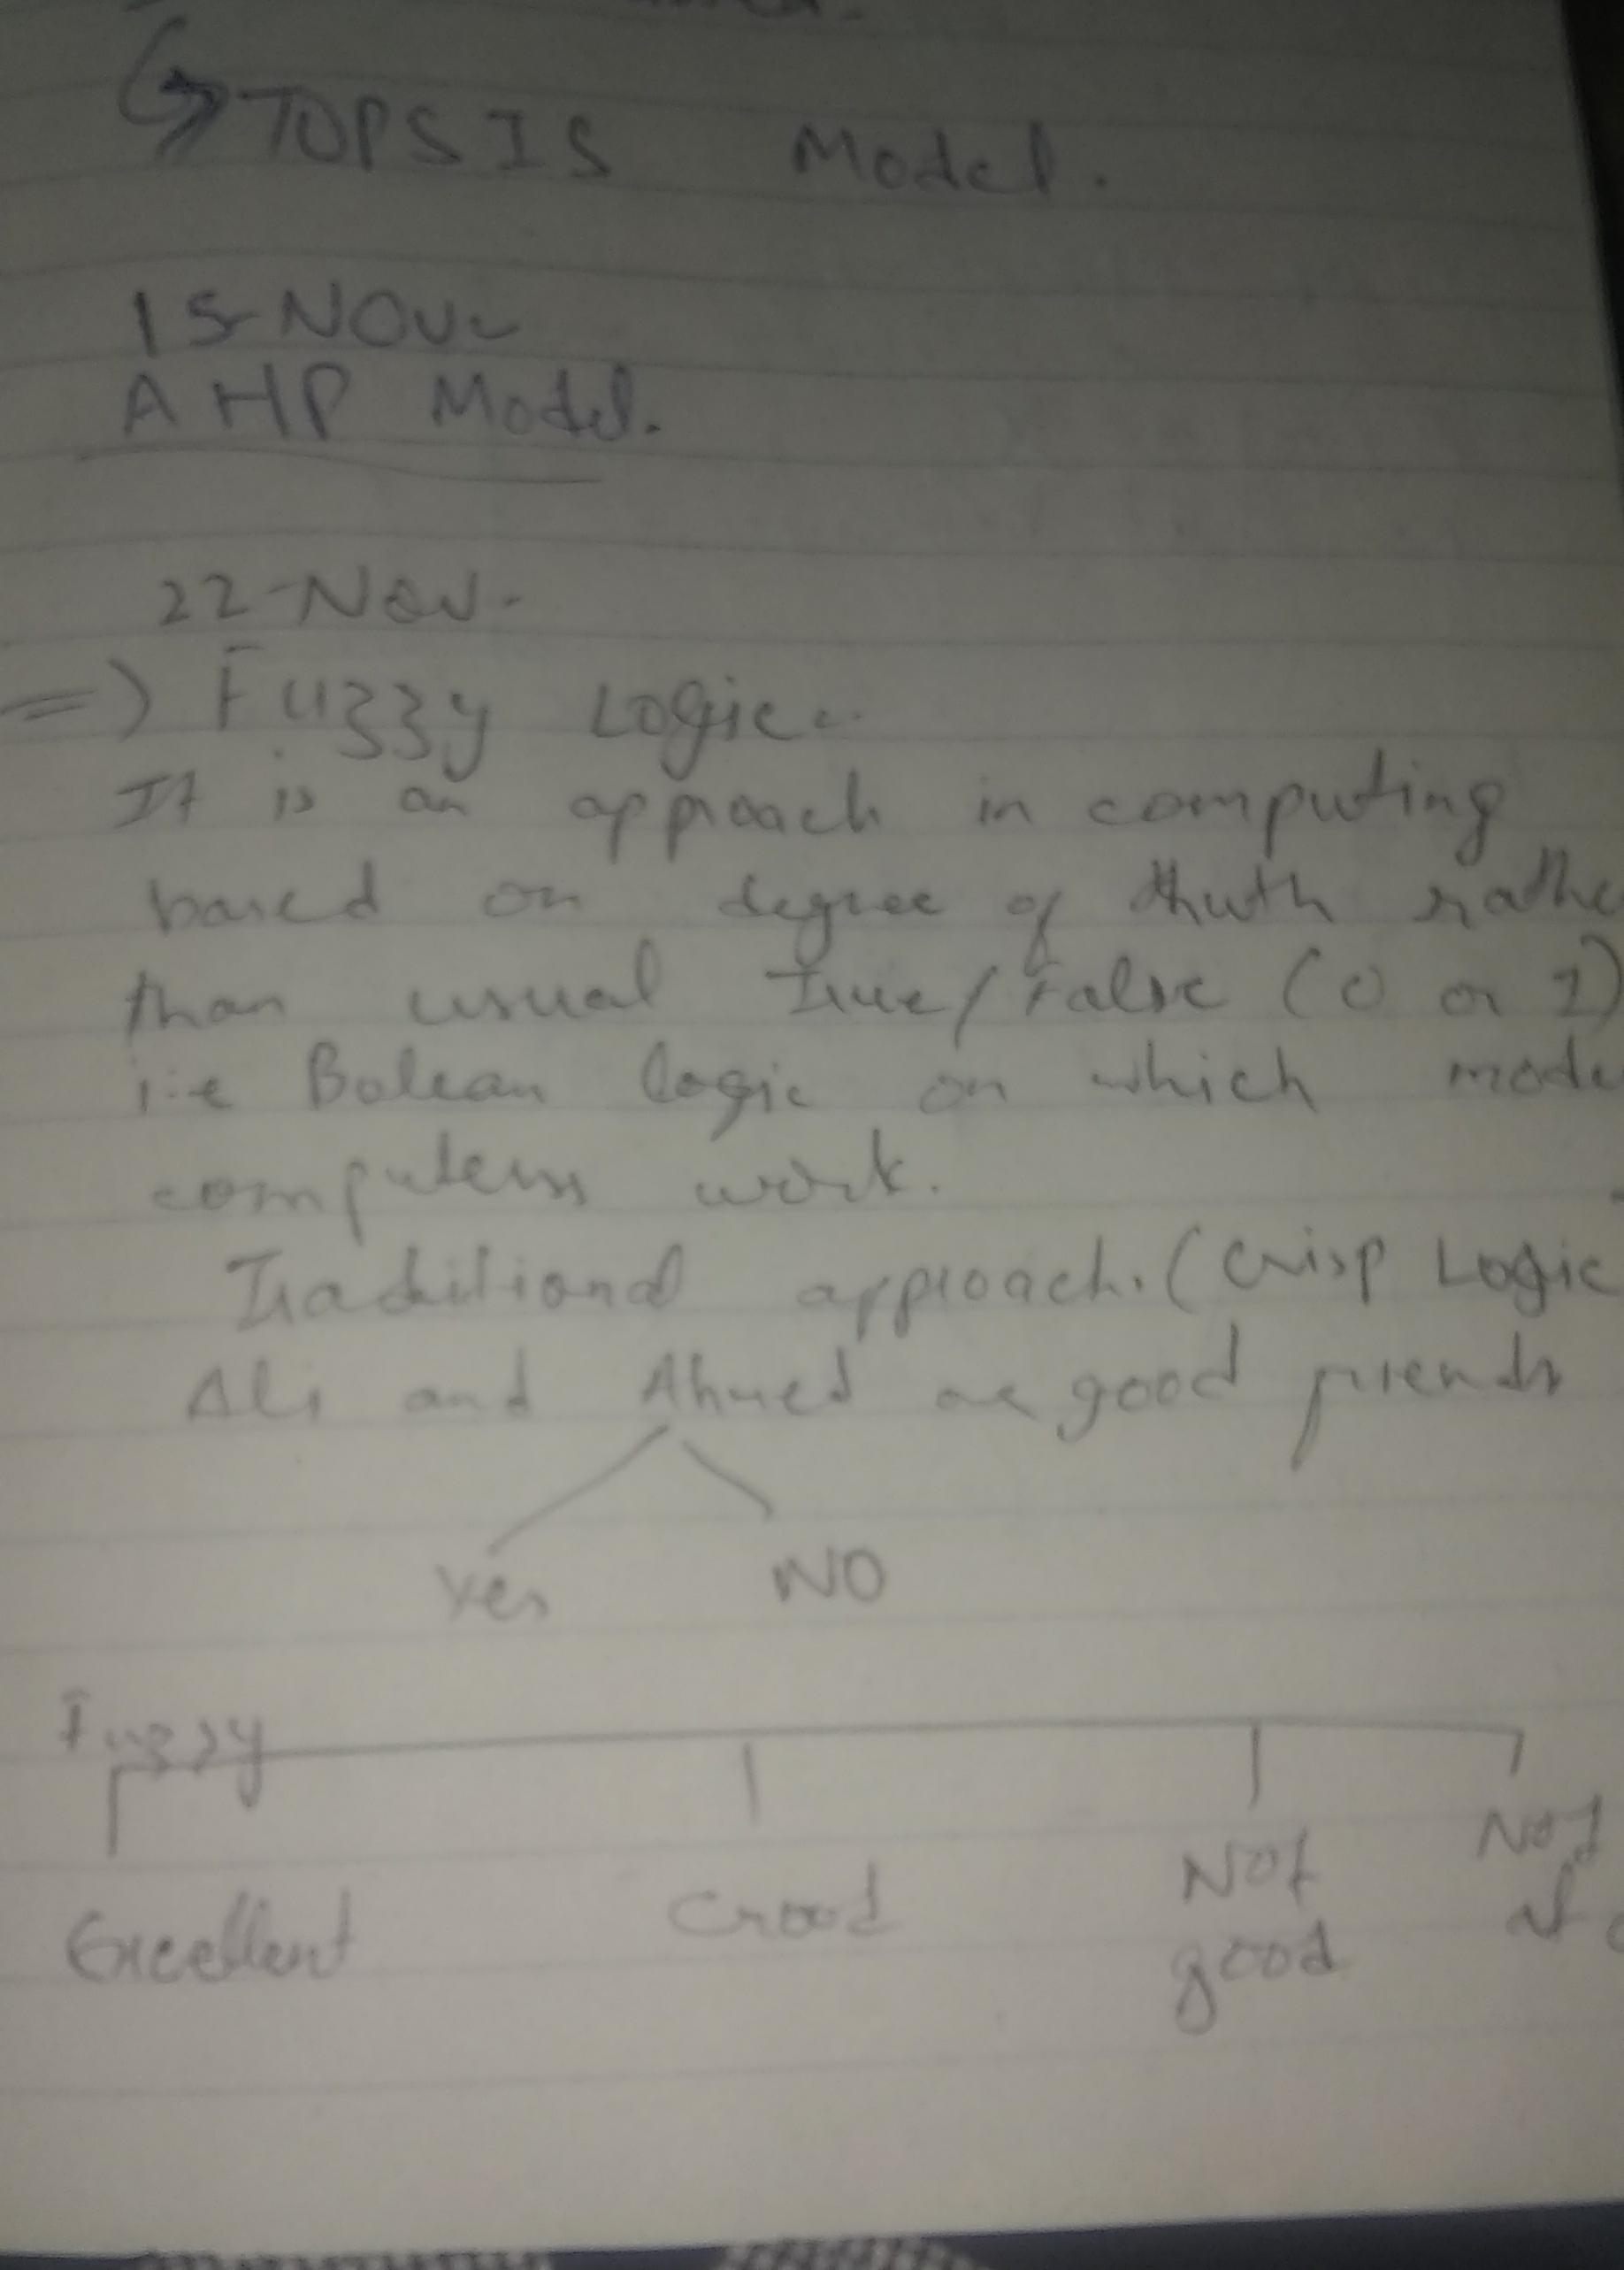 TOPSIS Model.
15-Nov-
AHP Model.
22-Nov-
=> Fuzzy Logic-
It is an approach in computing
based on degree of thuth rathe
than usual True/False (0 or 1)
i.e Bolean logic on which mode
computers work.
Traditional approach. (Crisp Logic
Ali and Ahmed are good friends
Yes NO
Fuzzy
Excellent Good Not Not
good at